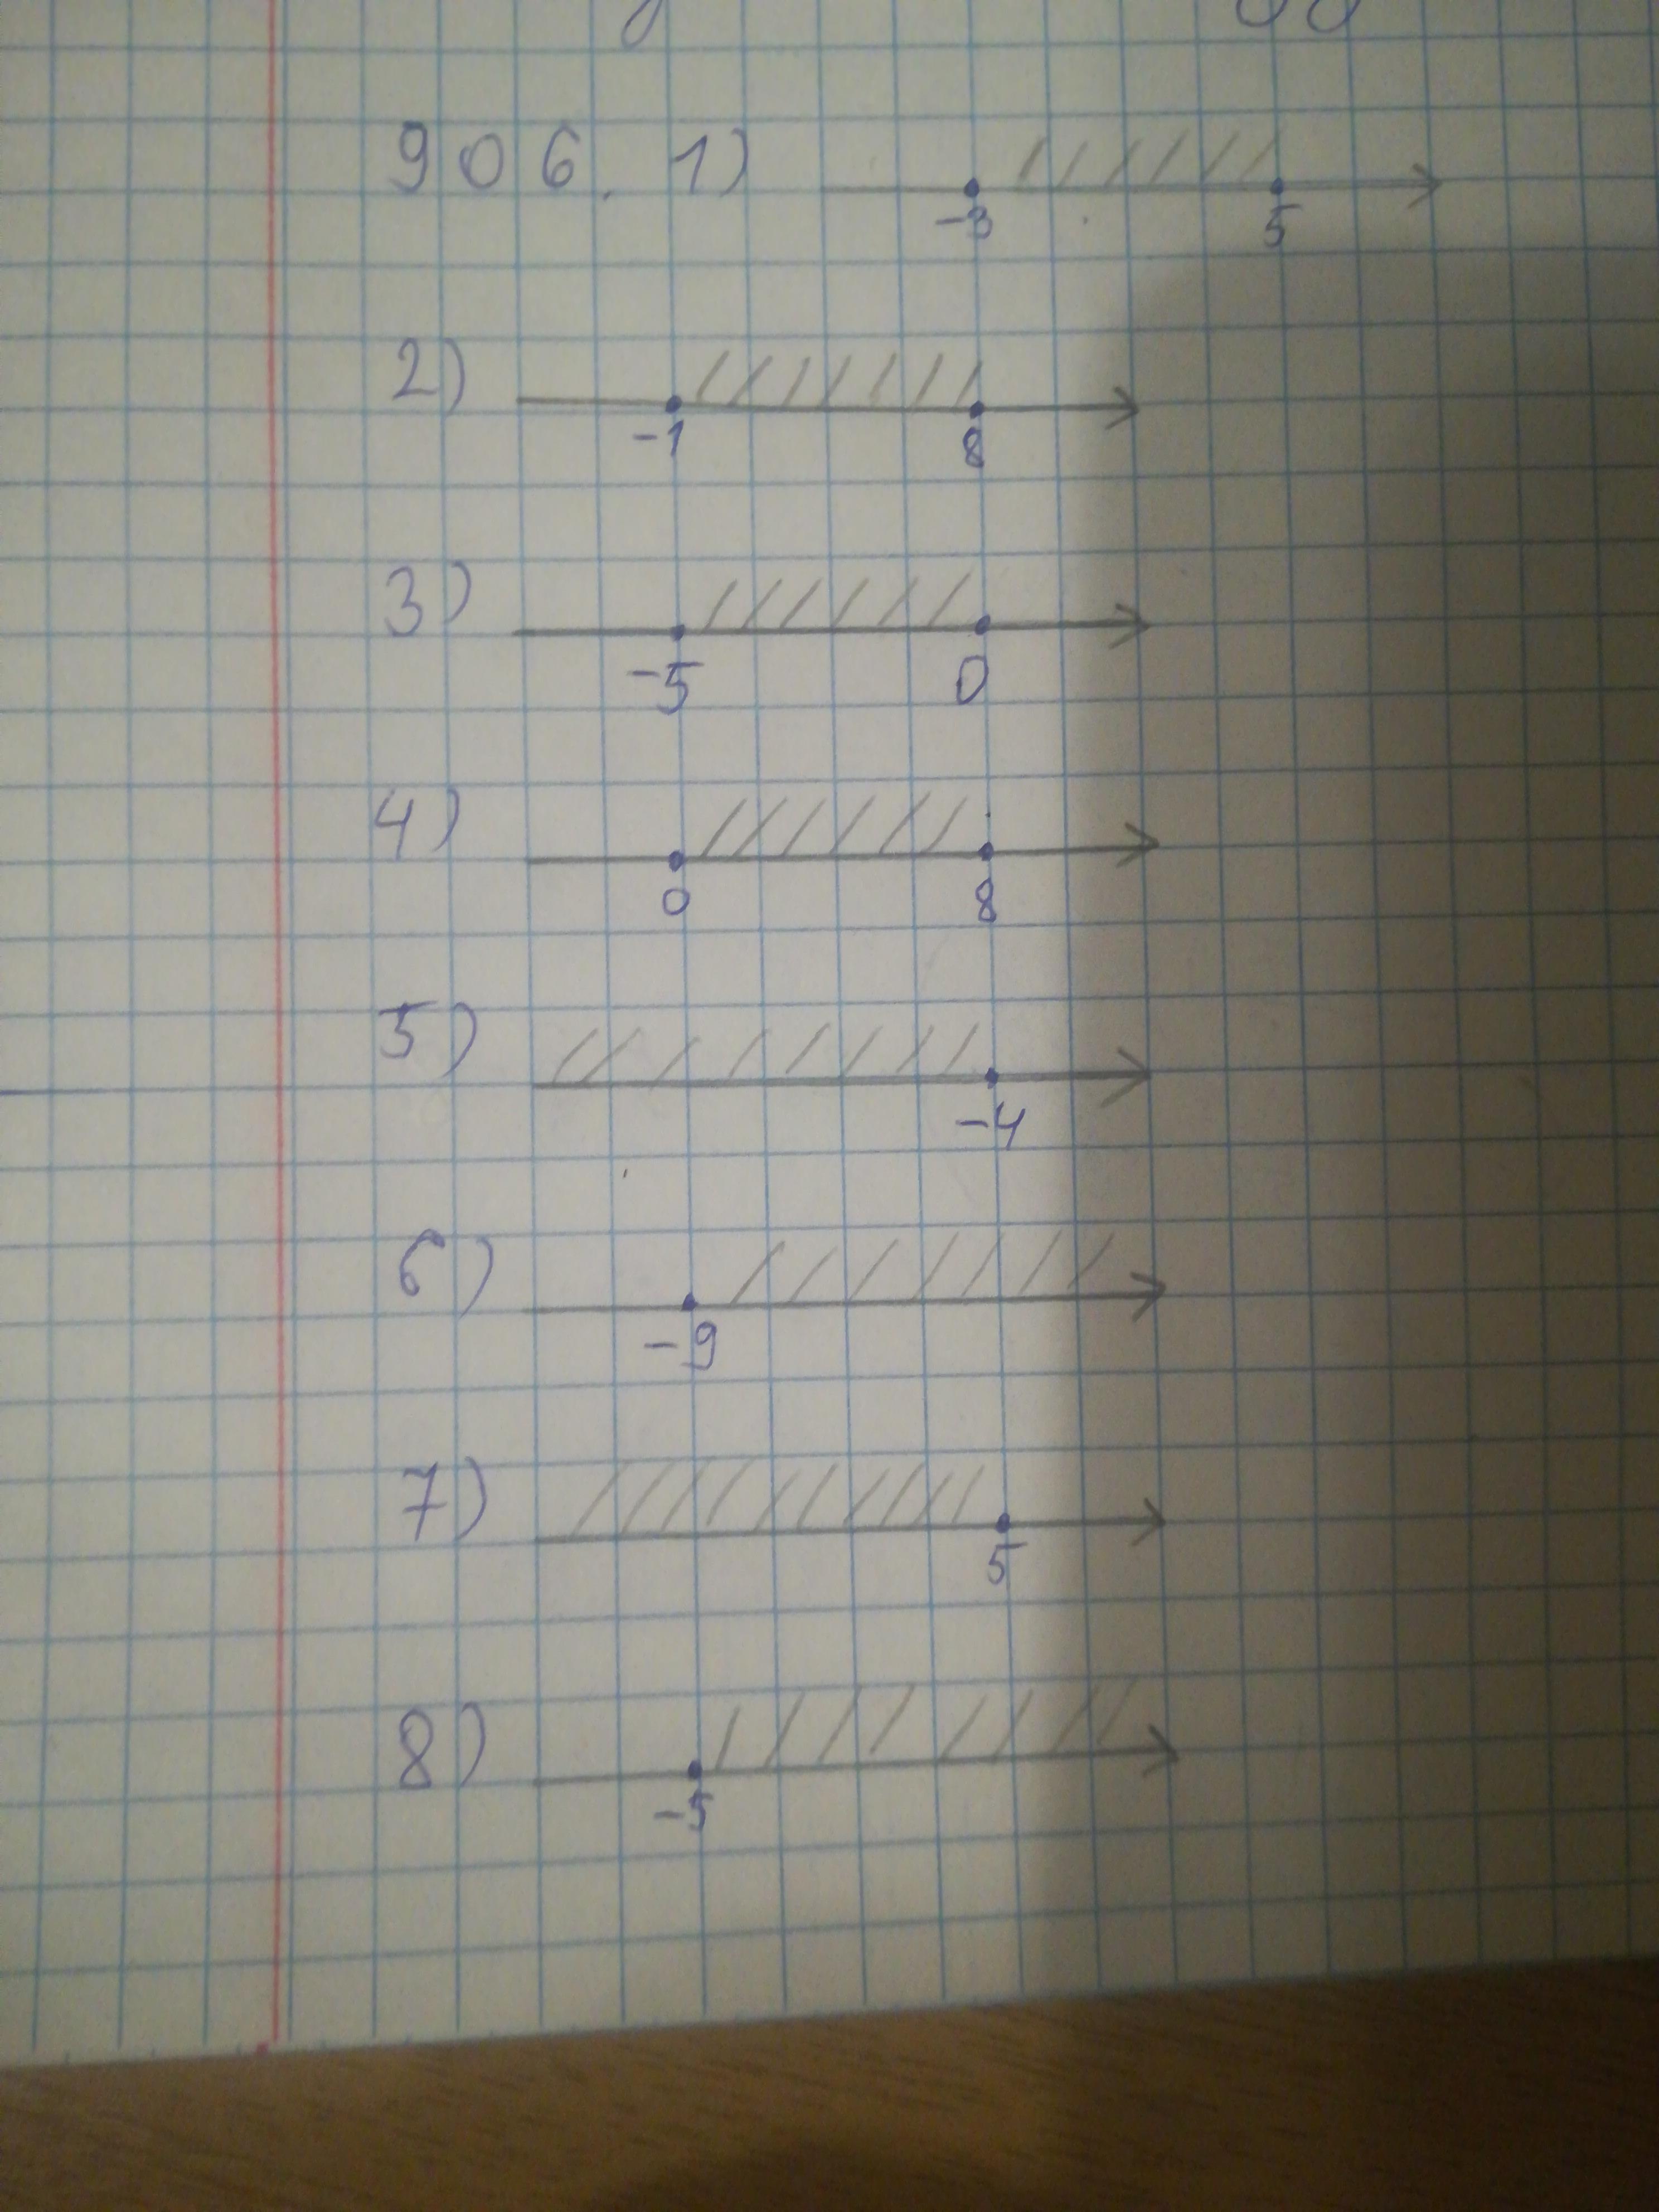 906. 1)
-3 5
2)
-1 8
3)
-5 0
4)
0 8
5)
-4
6)
-9
7)
5
8)
-5